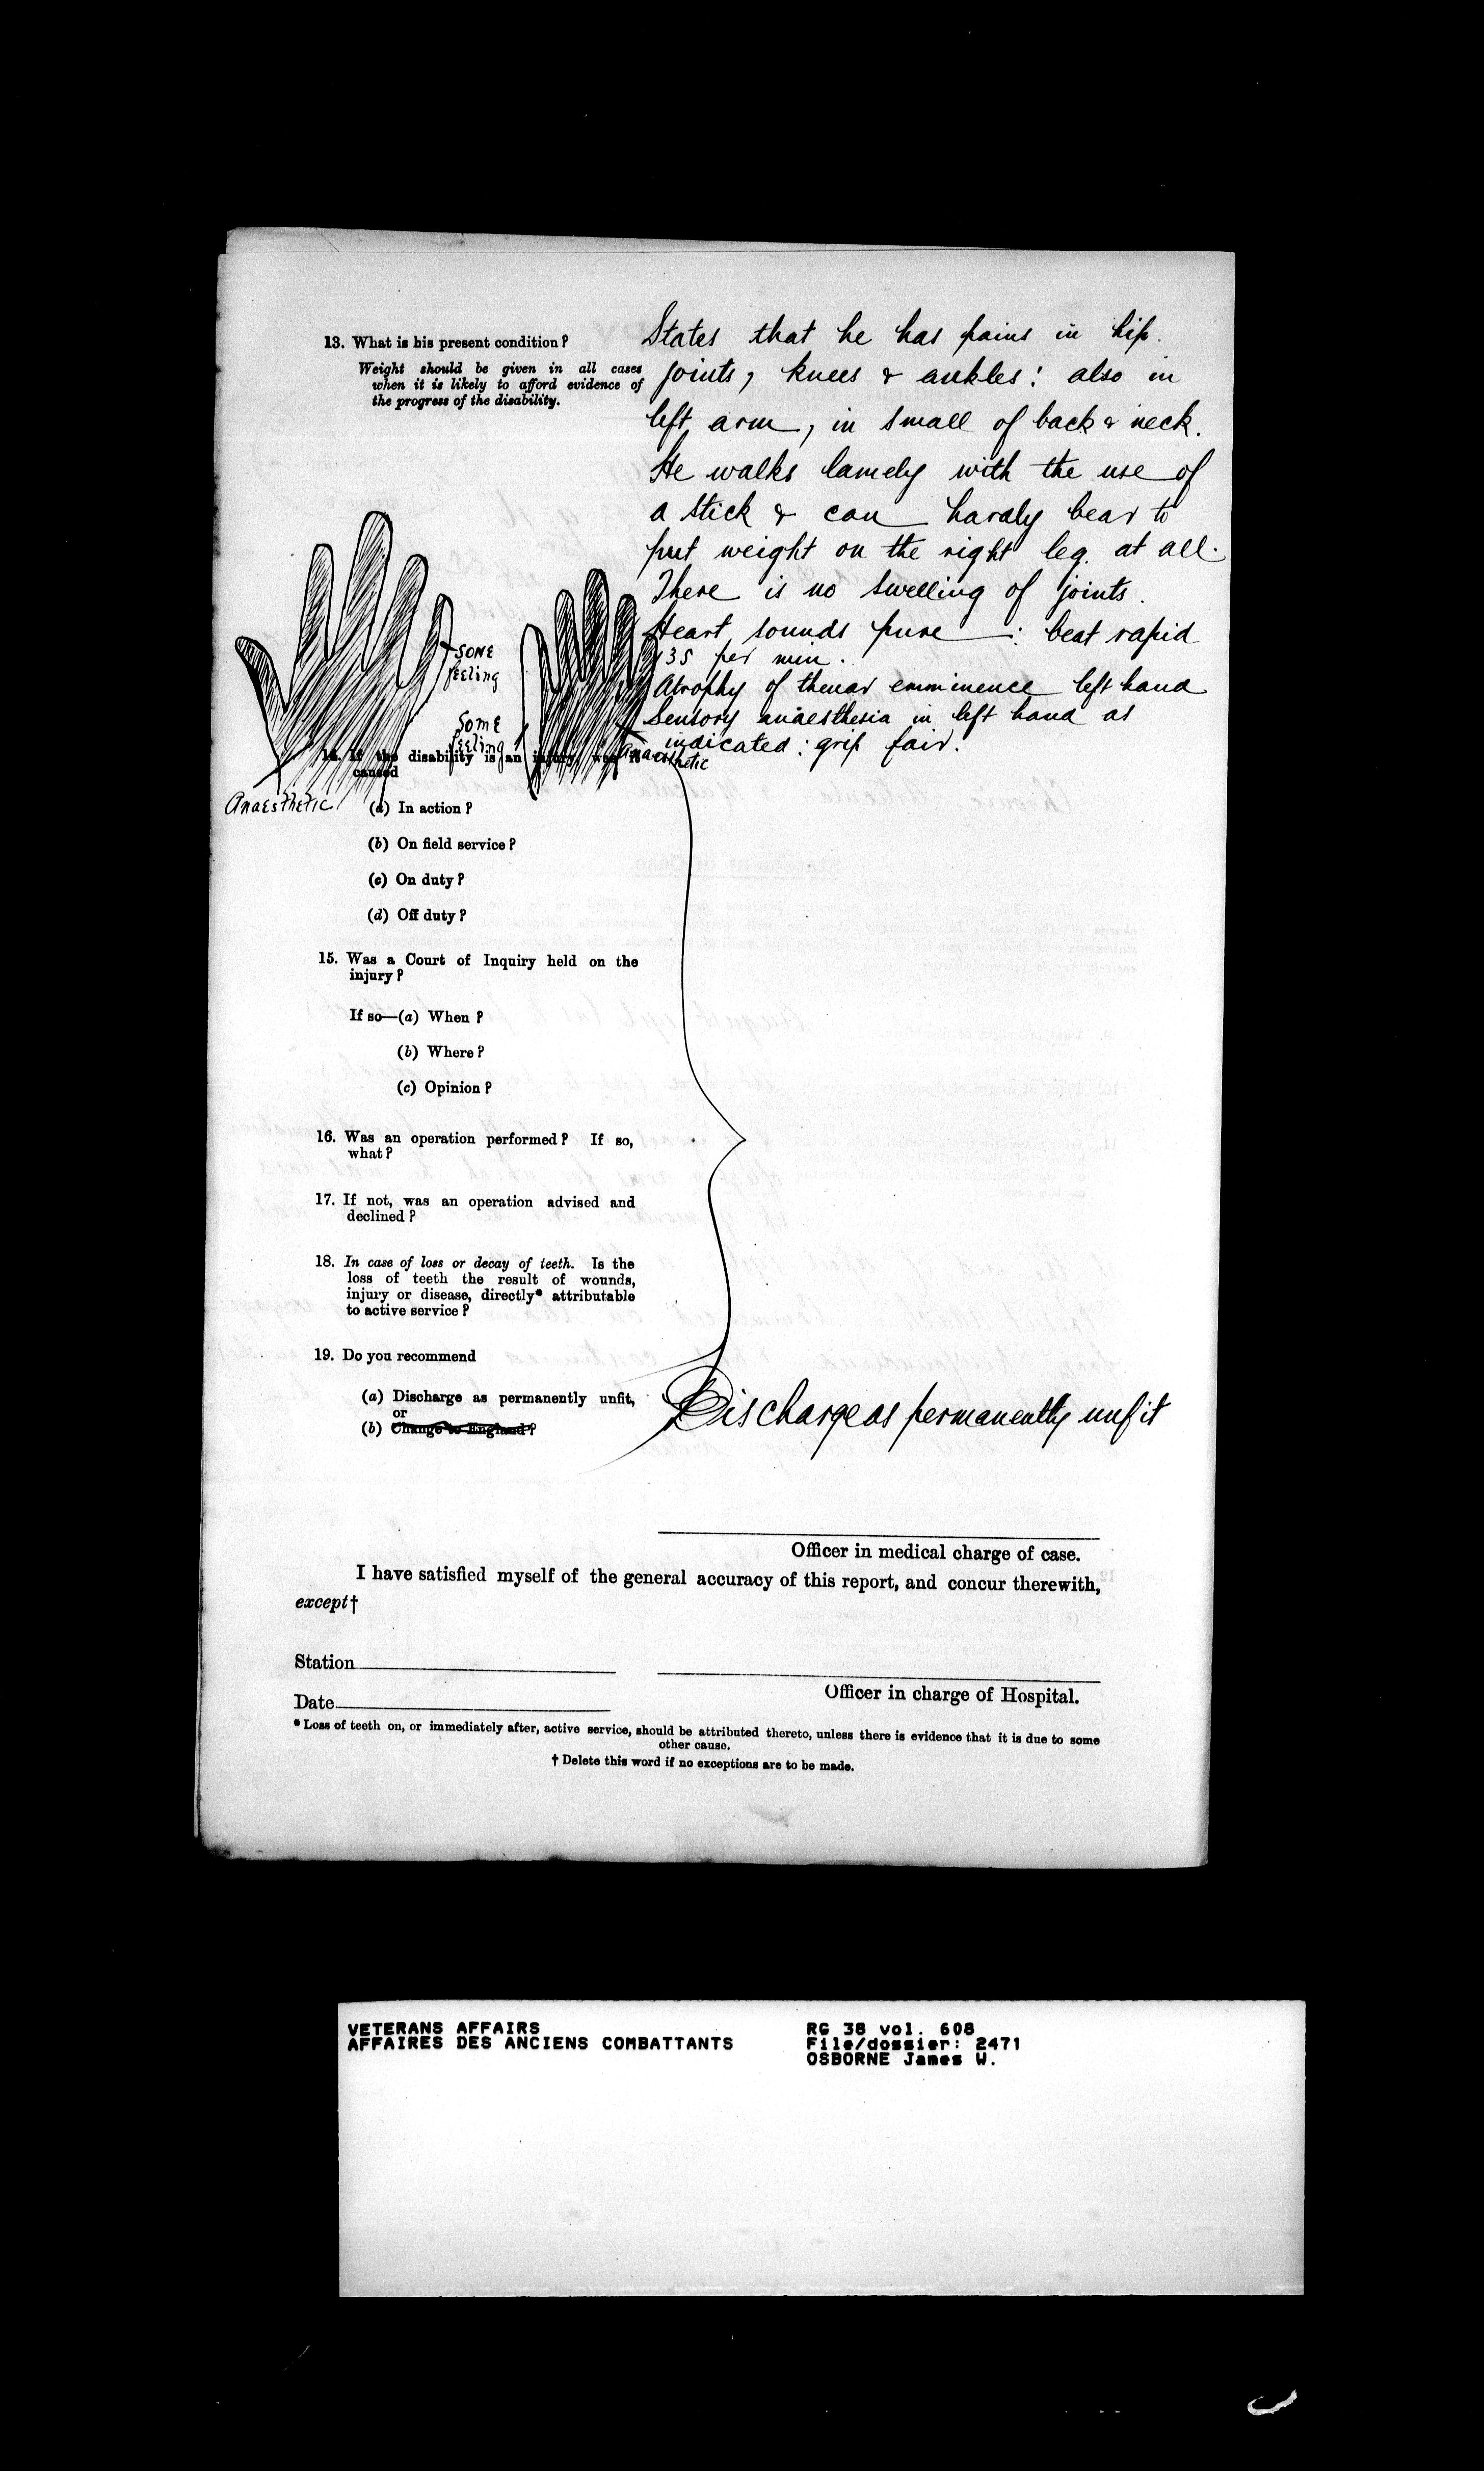 13. What is his present condition?
Weight should be given in all cases
when it is likely to afford evidence of
the progress of the disability.
States that he has pains in hip
joints, knees & ankles: also in
left arm, in small of back & neck.
He walks lamely with the use of
a stick & can hardly bear to
put weight on the right leg. at all.
There is no swelling of joints.
Heart sounds pure : beat rapid
135 per min.
Atrophy of thenar emminence left hand
Sensory anaesthesia in left hand as
indicated : grip fair.
SOME
feeling
SOME
feeling
Anaesthetic
Anaesthetic
14. If the disability is an injury, was it
caused
(a) In action?
(b) On field service?
(c) On duty?
(d) Off duty?
15. Was a Court of Inquiry held on the
injury?
If so—(a) When?
(b) Where?
(c) Opinion?
16. Was an operation performed? If so,
what?
17. If not, was an operation advised and
declined?
18. In case of loss or decay of teeth. Is the
loss of teeth the result of wounds,
injury or disease, directly* attributable
to active service?
19. Do you recommend
(a) Discharge as permanently unfit,
or
(b) Change to England?
Discharge as permanently unfit
Officer in medical charge of case.
I have satisfied myself of the general accuracy of this report, and concur therewith,
except†
Station
Officer in charge of Hospital.
Date
* Loss of teeth on, or immediately after, active service, should be attributed thereto, unless there is evidence that it is due to some
other cause.
† Delete this word if no exceptions are to be made.
VETERANS AFFAIRS
AFFAIRES DES ANCIENS COMBATTANTS
RG 38 vol. 608
File/dossier: 2471
OSBORNE James W.